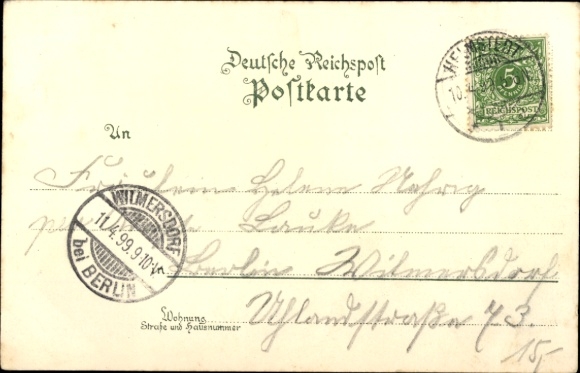 Deutsche Reichspost
Postkarte
HELMSTEDT
10.4.99
5
PFENNIG
REICHSPOST
An
Fräulein Helene Nehrig
Lauke
WILMERSDORF
11.4.99.9-10 V.
bei BERLIN
Berlin Wilmersdorf
Wohnung
Straße und Hausnummer
Uhlandstraße 73.
15,-